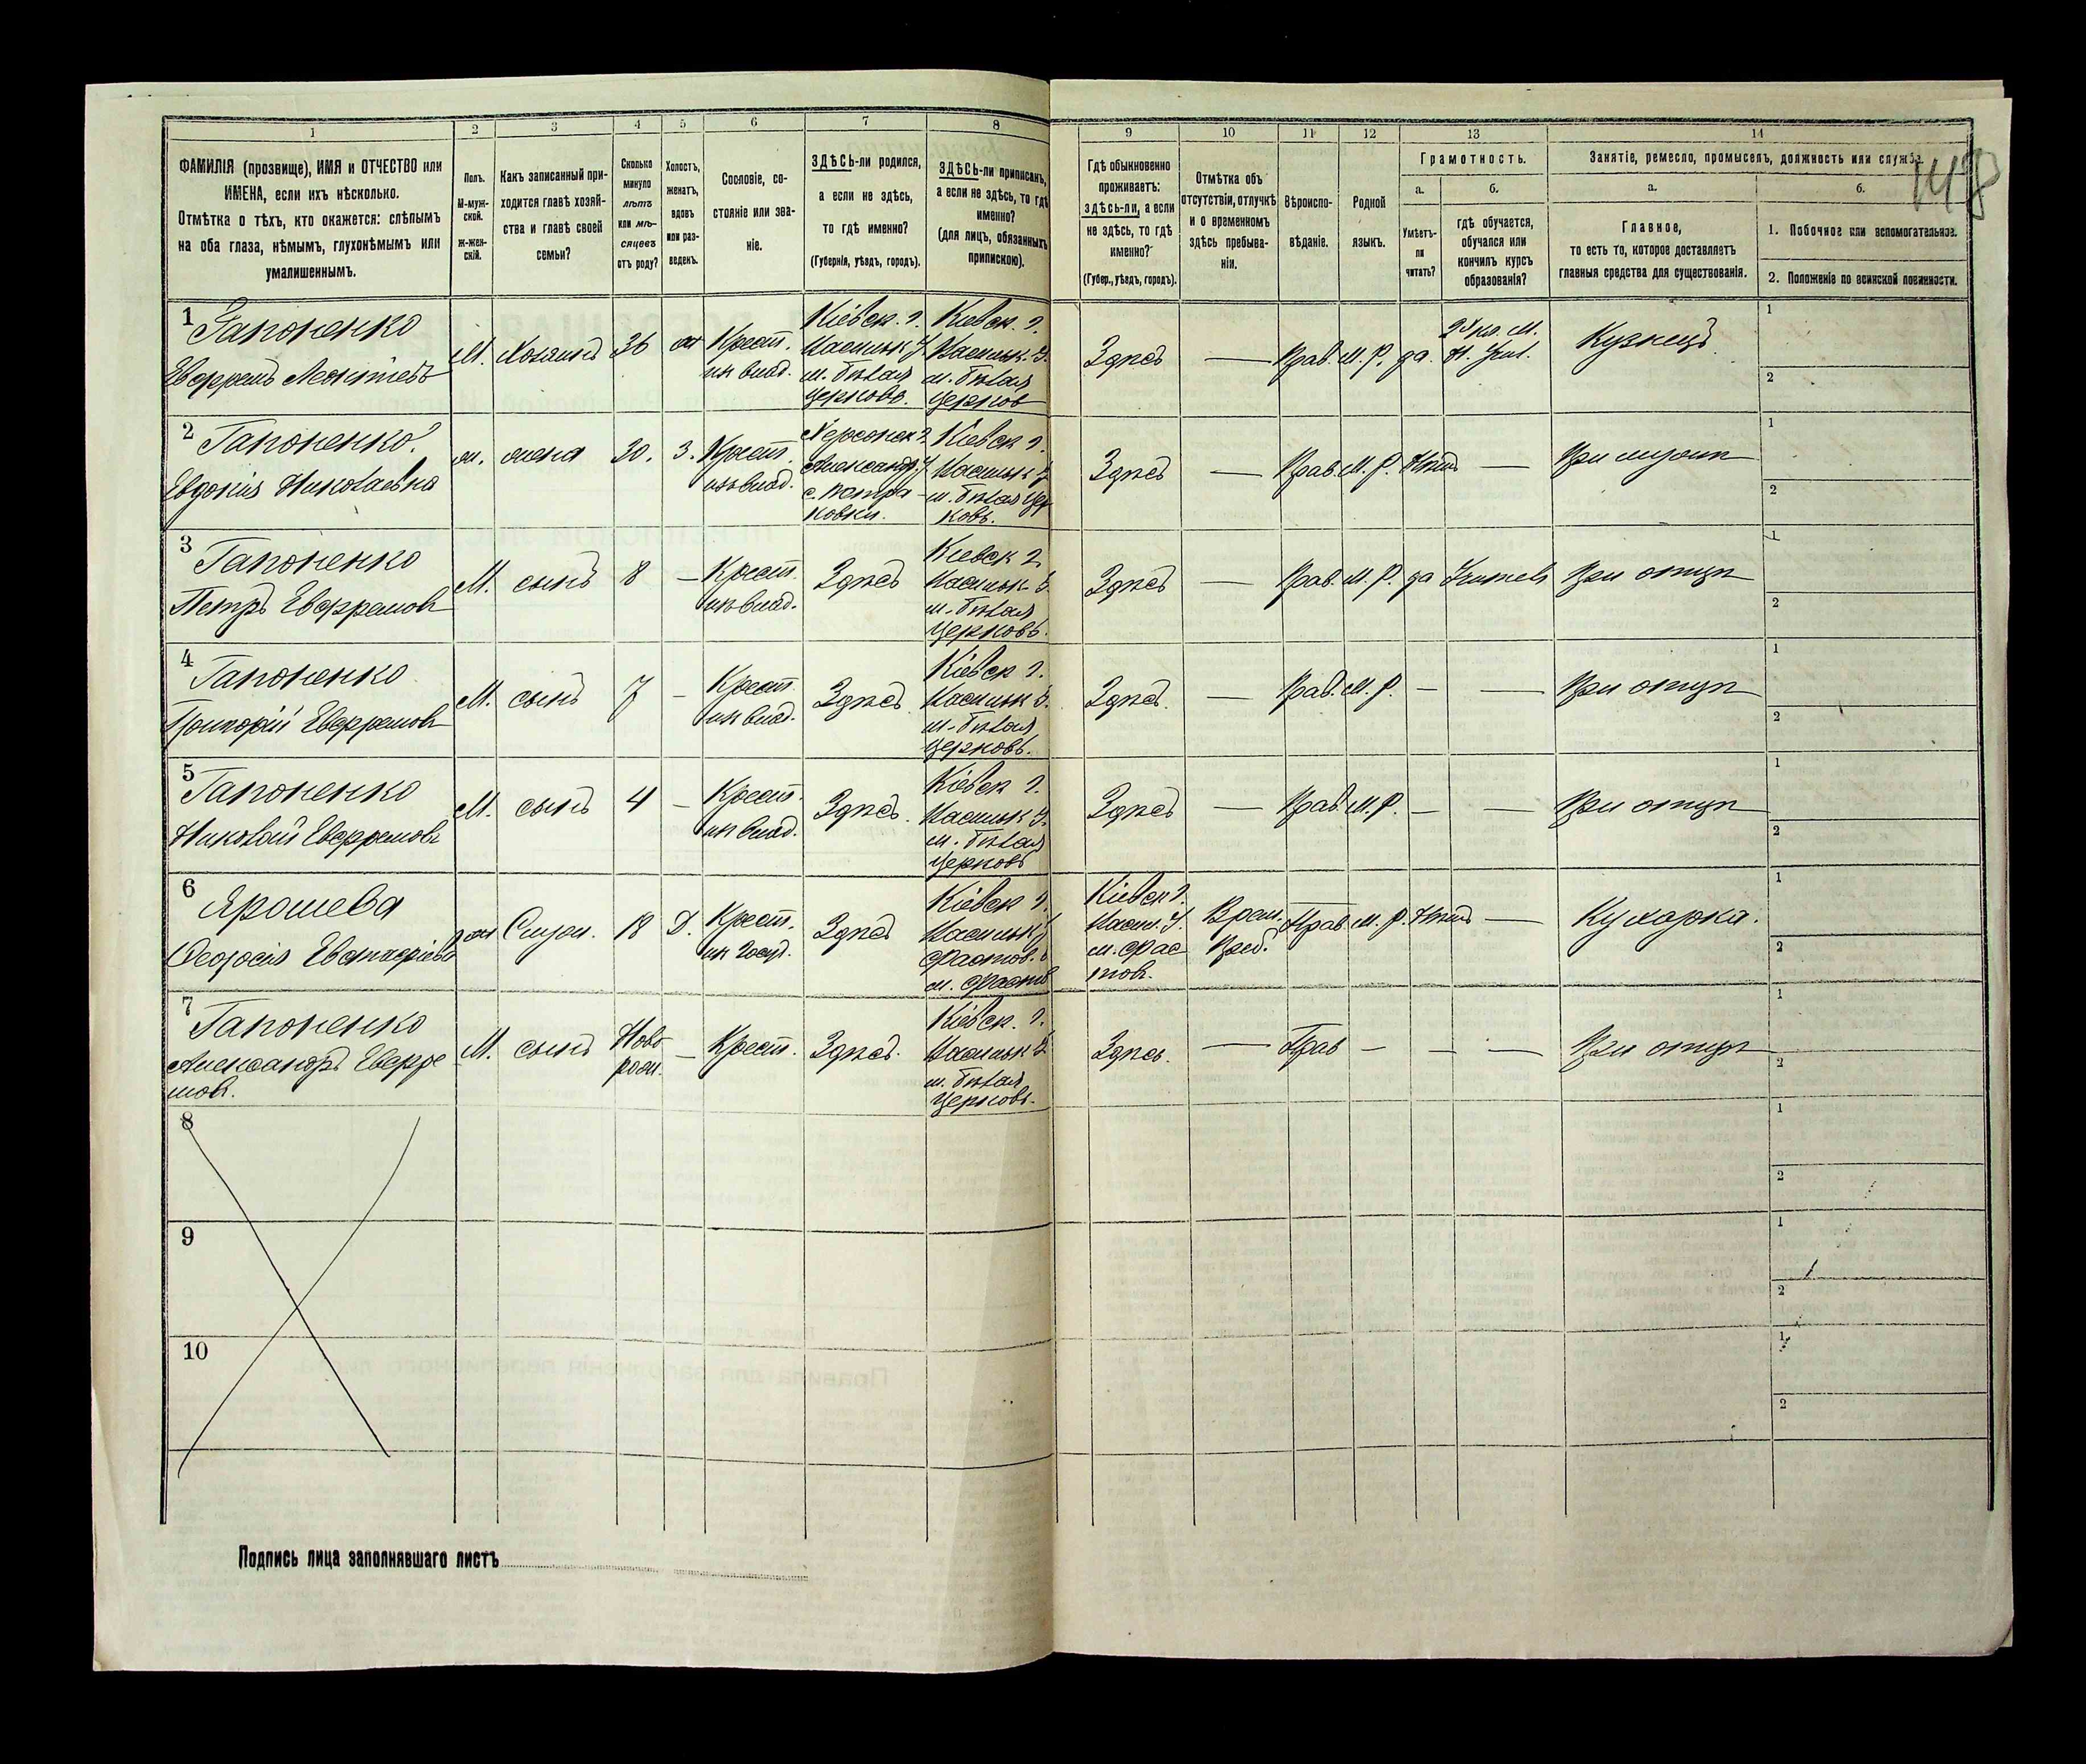 148
1 2 3 4 5 6 7 8 9 10 11 12 13 14
ФАМИЛІЯ (прозвище), ИМЯ и ОТЧЕСТВО или
ИМЕНА, если ихъ нѣсколько.
Отмѣтка о тѣхъ, кто окажется: слѣпымъ
на оба глаза, нѣмымъ, глухонѣмымъ или
умалишеннымъ.
Полъ.
М-муж-
ской.
ж-жен-
скій.
Какъ записанный при-
ходится главѣ хозяй-
ства и главѣ своей
семьи?
Сколько
минуло
лѣтъ
или мѣ-
сяцевъ
отъ роду?
Холостъ,
женатъ,
вдовъ
или раз-
веденъ.
Сословіе, со-
стояніе или зва-
ніе.
ЗДѢСЬ-ли родился,
а если не здѣсь,
то гдѣ именно?
(Губернія, уѣздъ, городъ).
ЗДѢСЬ-ли приписанъ,
а если не здѣсь, то гдѣ
именно?
(для лицъ, обязанныхъ
припискою).
Гдѣ обыкновенно
проживаетъ:
здѣсь-ли, а если
не здѣсь, то гдѣ
именно?
(Губер., уѣздъ, городъ).
Отмѣтка объ
отсутствіи, отлучкѣ
и о временномъ
здѣсь пребыва-
ніи.
Вѣроиспо-
вѣданіе.
Родной
языкъ.
Грамотность.
а.
Умѣетъ-
ли
читать?
б.
гдѣ обучается,
обучался или
кончилъ курсъ
образованія?
Занятіе, ремесло, промыселъ, должность или служба.
а.
Главное,
то есть то, которое доставляетъ
главныя средства для существованія.
б.
1. Побочное или вспомогательное.
2. Положеніе по воинской повинности.
1
Гапоненко
Евфремъ Леонтіевъ
М.
Хозяинъ
36
ж
Крест.
из влад.
Кіевск. г.
Васильк. у
м. Бѣлая
Церковь.
Кіевск. г.
Васильк. у.
м. Бѣлая
Церков
Здѣсь
—
Прав.
М. Р.
да.
Н. Учил.
Кузнецъ
1
2
2
Гапоненко
Евдокія Николаевна
ж.
жена
30.
З.
Крест.
изъ влад.
Херсонск г.
Александр. у
Кіевск г.
Васильк у
м. Бѣлая Цер
ковь.
Здѣсь
—
Прав.
М. Р.
Нѣтъ
—
При мужѣ
1
2
3
Гапоненко
Петръ Евфремовъ
М.
сынъ
8
—
Крест.
из влад.
Здѣсь
Кіевск г.
Васильк. у.
м. Бѣлая
Церковь.
Здѣсь
—
Прав.
М. Р.
да
При отцѣ
1
2
4
Гапоненко
Григорій Евфремовъ
М.
сынъ
7
—
Крест.
из влад.
Здѣсь
Кіевск г.
Васильк у.
м. Бѣлая
Церковь.
Здѣсь.
—
Прав.
М. Р.
—
—
При отцѣ
1
2
5
Гапоненко
Николай Евфремовъ
М.
сынъ
4
—
Крест.
из влад.
Здѣсь.
Кіевск г.
Васильк у.
м. Бѣлая
Церковь
Здѣсь
—
Прав.
М. Р.
—
—
При отцѣ
1
2
6
Ярошева
жен
Служ.
18
Д.
Крест.
из госуд.
Здѣсь
Кіевск г.
Васильк у
Фастов. в
м. Фастов
Кіевск г.
Васил. у.
м. Фас
тов.
Врем.
Преб.
Прав.
М. Р.
Нѣтъ
—
Кухарка.
1
2
7
Гапоненко
Александръ Евфре
мовъ.
М.
сынъ
Ново
рож.
—
Крест.
Здѣсь.
Кіевск. г.
Васильк у
м. Бѣлая
Церковь.
Здѣсь.
—
Прав
—
—
—
При отцѣ
1
2
8
1
2
9
1
2
10
1
2
Подпись лица заполнявшаго листъ